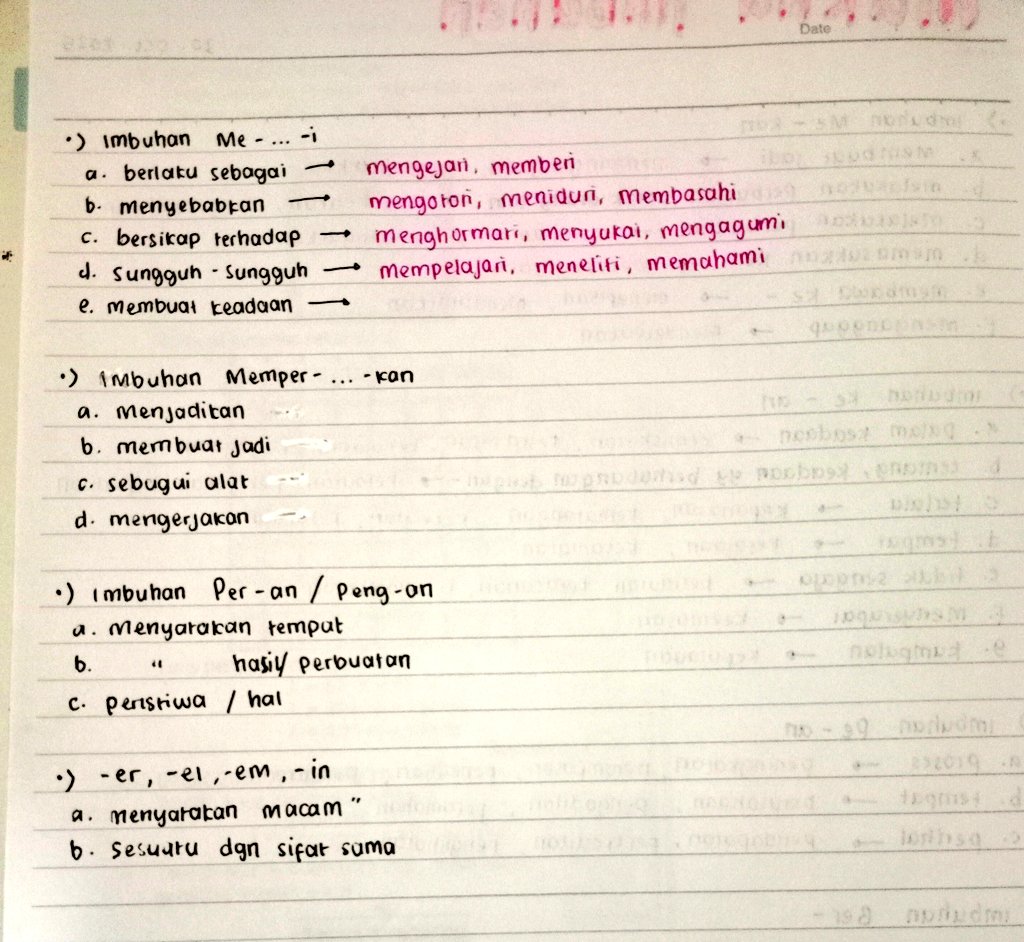 Date
•) Imbuhan Me - ... -i
a. berlaku sebagai → mengejari, memberi
b. menyebabkan → mengotori, meniduri, Membasahi
c. bersikap terhadap → menghormati, menyukai, mengagumi
d. Sungguh - Sungguh → mempelajari, meneliti, memahami
e. membuat keadaan →
•) Imbuhan Memper - ... - kan
a. Menjadikan
b. membuat jadi
c. sebagai alat
d. mengerjakan
•) Imbuhan Per - an / Peng - an
a. Menyatakan tempat
b. " hasil/ perbuatan
c. peristiwa / hal
•) -er, -el, -em, -in
a. menyatakan macam"
b. Sesuatu dgn sifat sama